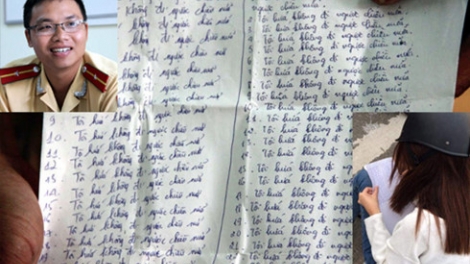 không đi ngược chiều nữa
không đi ngược chiều nữa
không đi ngược chiều nữa
không đi ngược chiều nữa
không đi ngược chiều nữa
không đi ngược chiều nữa
không đi ngược chiều nữa
9. Tôi hứa không đi ngược chiều nữa
10. Tôi hứa không đi ngược chiều nữa
11. Tôi hứa không đi ngược chiều nữa
12. Tôi hứa không đi ngược chiều nữa
13. Tôi hứa không đi ngược chiều nữa
14. Tôi hứa không đi ngược chiều nữa
15. Tôi hứa không đi ngược chiều nữa
16. Tôi hứa không đi ngược chiều nữa
17. Tôi hứa không đi ngược chiều nữa
18. Tôi hứa không đi ngược chiều nữa
Tôi hứa không đi ngược chiều nữa.
Tôi hứa không đi ngược chiều nữa.
Tôi hứa không đi ngược chiều nữa.
Tôi hứa không đi ngược chiều nữa.
Tôi hứa không đi ngược chiều nữa.
Tôi hứa không đi ngược chiều nữa.
Tôi hứa không đi ngược chiều nữa.
Tôi hứa không đi ngược
Tôi hứa không đi ngược
Tôi hứa không đi ngược
Tôi hứa không đi ngược
Tôi hứa không đi ngược
Tôi hứa không đi ngược
Tôi hứa không đi ngược
Tôi hứa không đi ngược
Tôi hứa không đi ngược
Tôi hứa không đi ngược